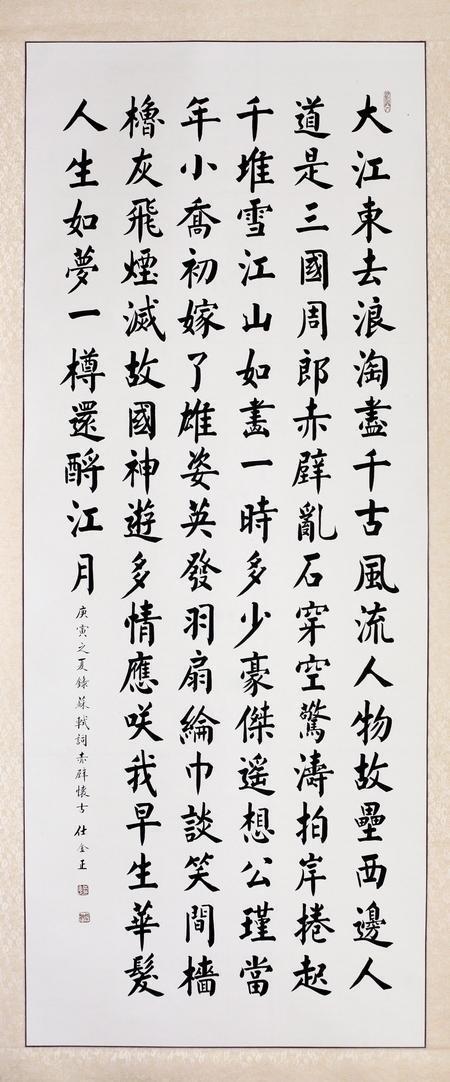 大江東去浪淘盡千古風流人物故壘西邊人
道是三國周郎赤壁亂石穿空驚濤拍岸捲起
千堆雪江山如畫一時多少豪傑遙想公瑾當
年小喬初嫁了雄姿英發羽扇綸巾談笑間檣
櫓灰飛煙滅故國神遊多情應咲我早生華髮
人生如夢一樽還酹江月
庚寅之夏錄蘇軾詞赤壁懷古 仕金